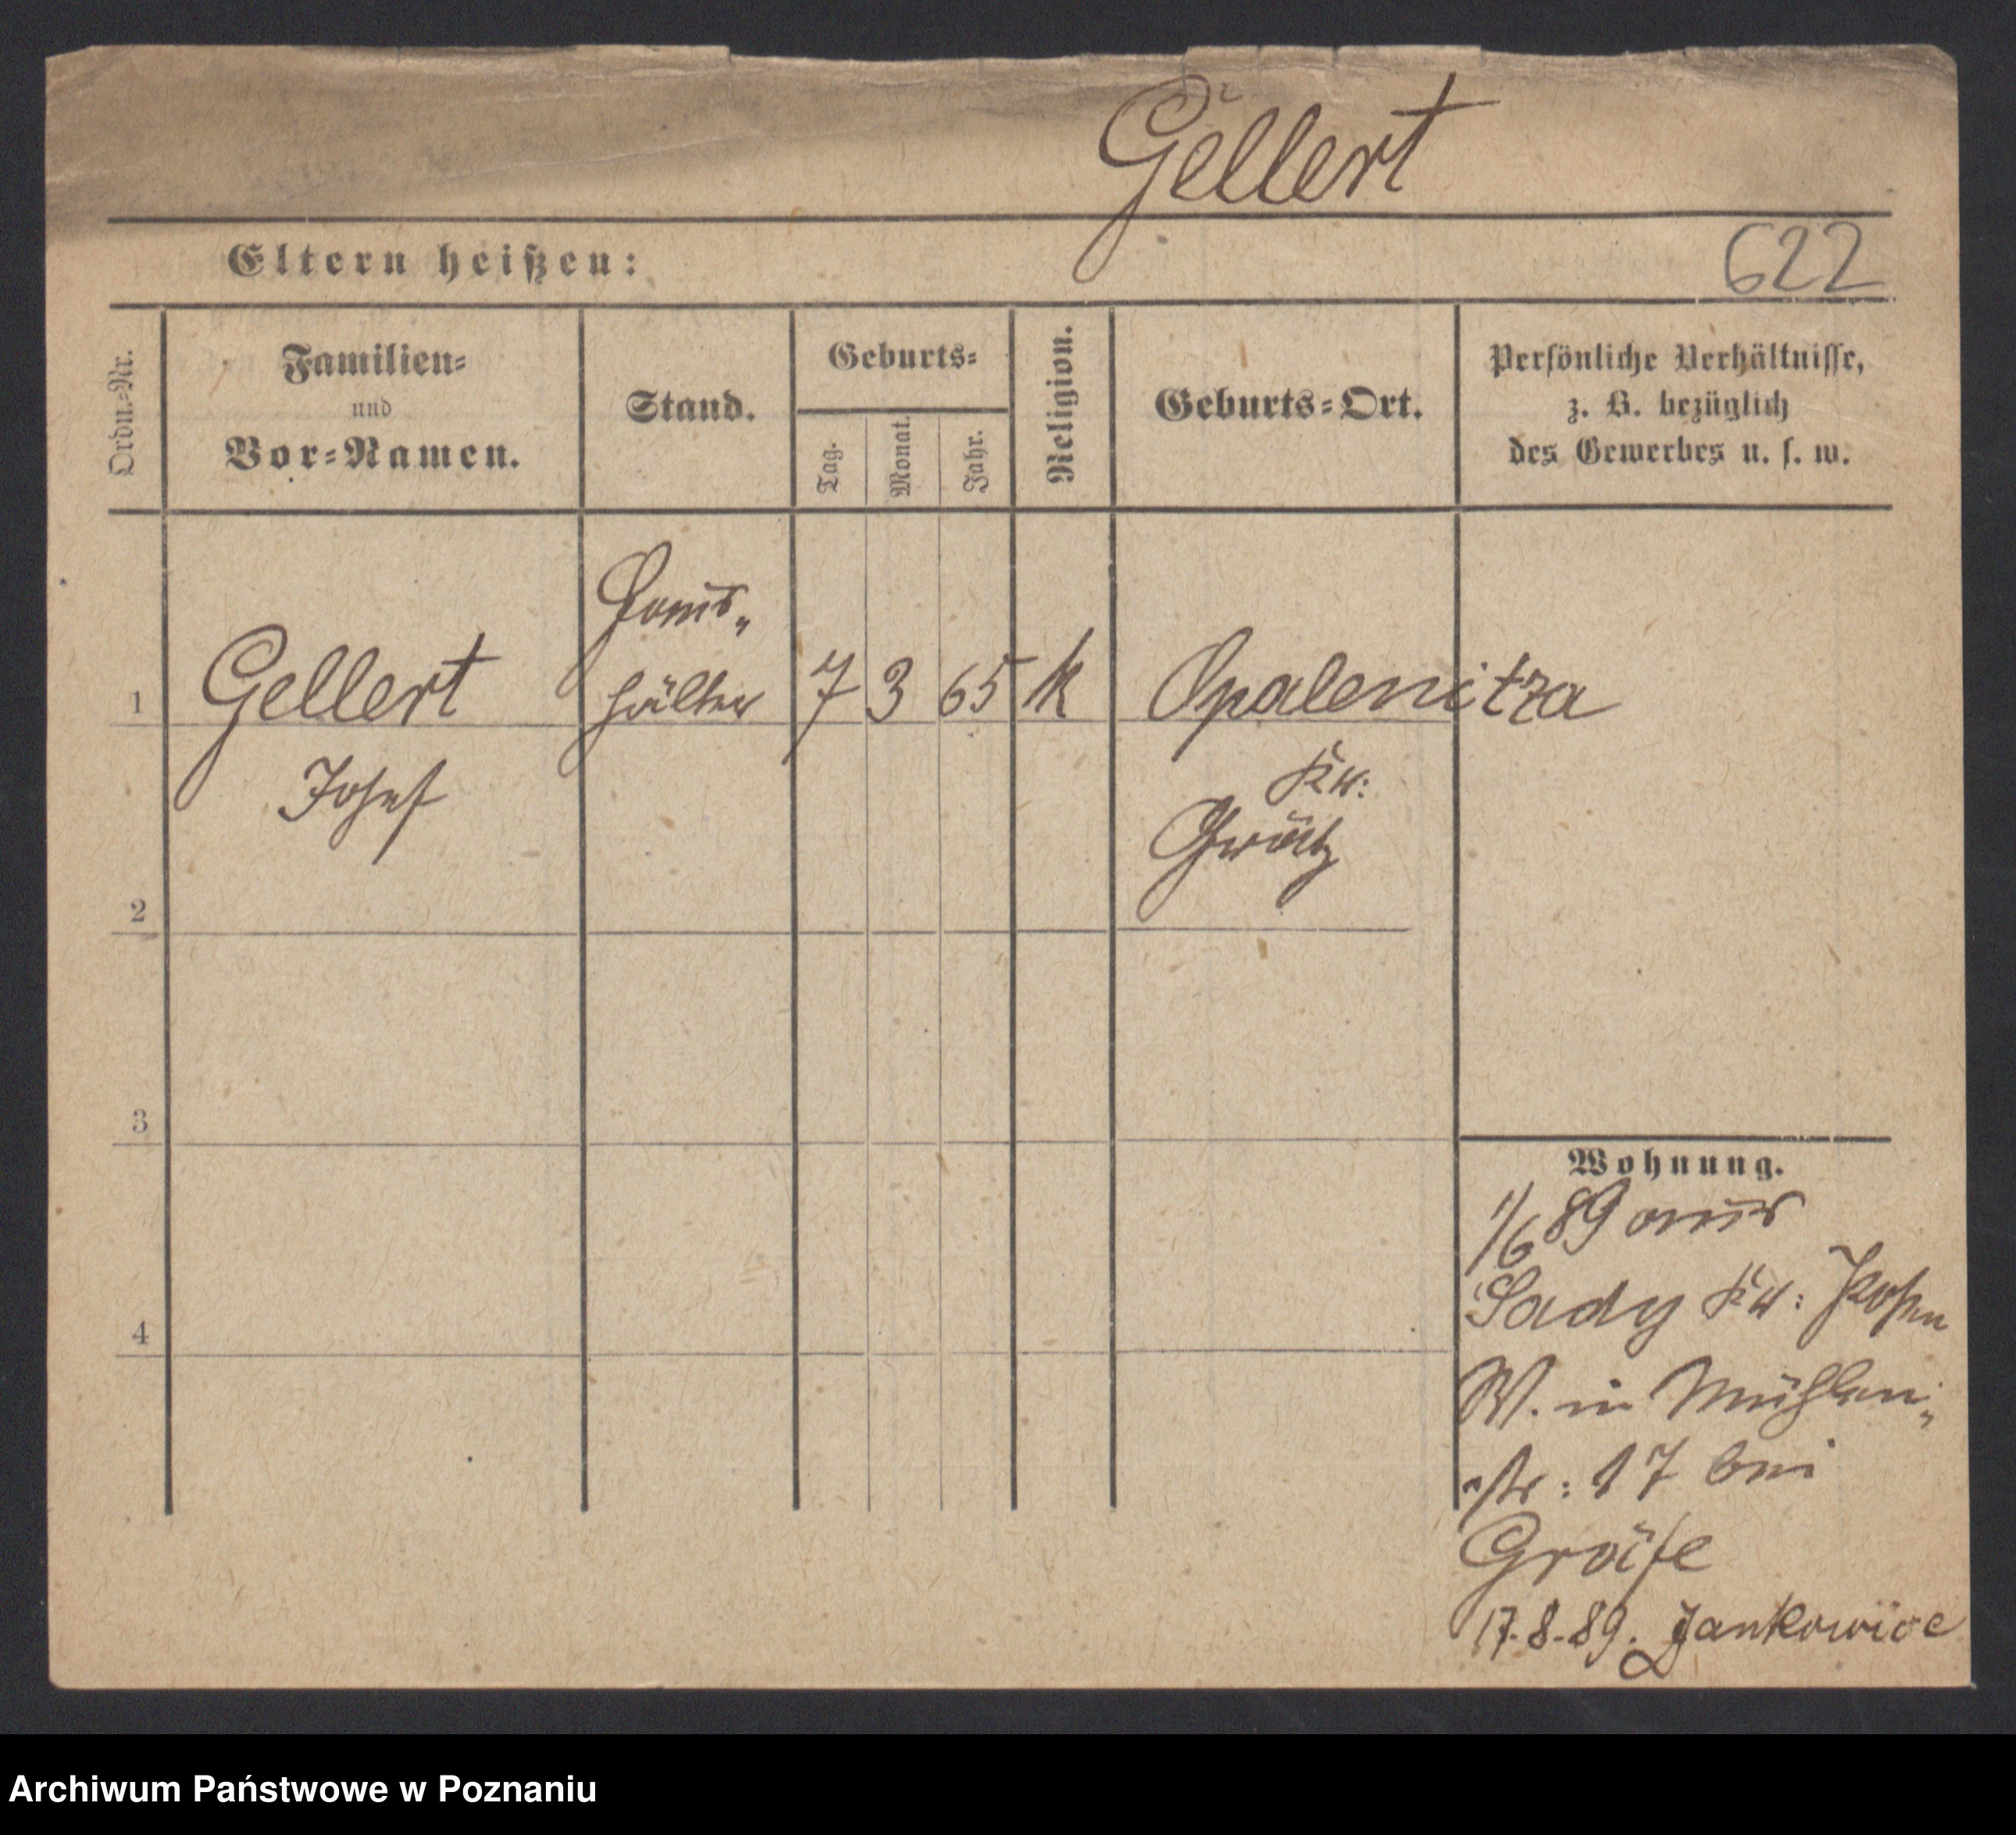 Gellert
622
Eltern heißen:
Ordn.-Nr.
Familien-
und
Vor-Namen.
Stand.
Geburts-
Tag.
Monat.
Jahr.
Religion.
Geburts-Ort.
Persönliche Verhältnisse,
z. B. bezüglich
des Gewerbes u. s. w.
1
Gellert
Haus-
hälter
7
3
65
k
Opalenitza
Josef
Kr:
Grätz
2
3
4
Wohnung.
1/6 89 aus
Sady Kr: Posen
W. in Mühlen-
str: 17 bei
Gräfe
17.8.89. Jankowice
Archiwum Państwowe w Poznaniu